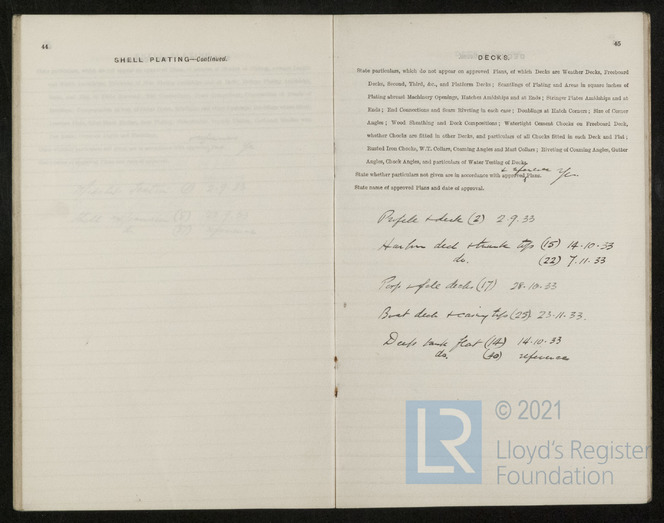 44
SHELL PLATING—Continued.
45
DECKS.
State particulars, which do not appear on approved Plans, of which Decks are Weather Decks, Freeboard
Decks, Second, Third, &c., and Platform Decks; Scantlings of Plating and Areas in square inches of
Plating abreast Machinery Openings, Hatches Amidships and at Ends; Stringer Plates Amidships and at
Ends; End Connections and Seam Riveting in each case; Doublings at Hatch Corners; Size of Corner
Angles; Wood Sheathing and Deck Compositions; Watertight Cement Chocks on Freeboard Deck,
whether Chocks are fitted in other Decks, and particulars of all Chocks fitted in each Deck and Flat;
Rusted Iron Chocks, W.T. Collars, Coaming Angles and Mast Collars; Riveting of Coaming Angles, Gutter
Angles, Chock Angles, and particulars of Water Testing of Decks.
& reference
State whether particulars not given are in accordance with approved Plans. Yes
State name of approved Plans and date of approval.
Profile & deck (2) 2.9.33
Harbour deck & trunk tops (15) 14.10.33
do. (22) 7.11.33
Poop & fcle decks (17) 28.10.33
Boat deck & casing tops (25) 23.11.33.
Deep tank flat (14) 14.10.33
do. (40) reference
LR
© 2021
Lloyd's Register
Foundation